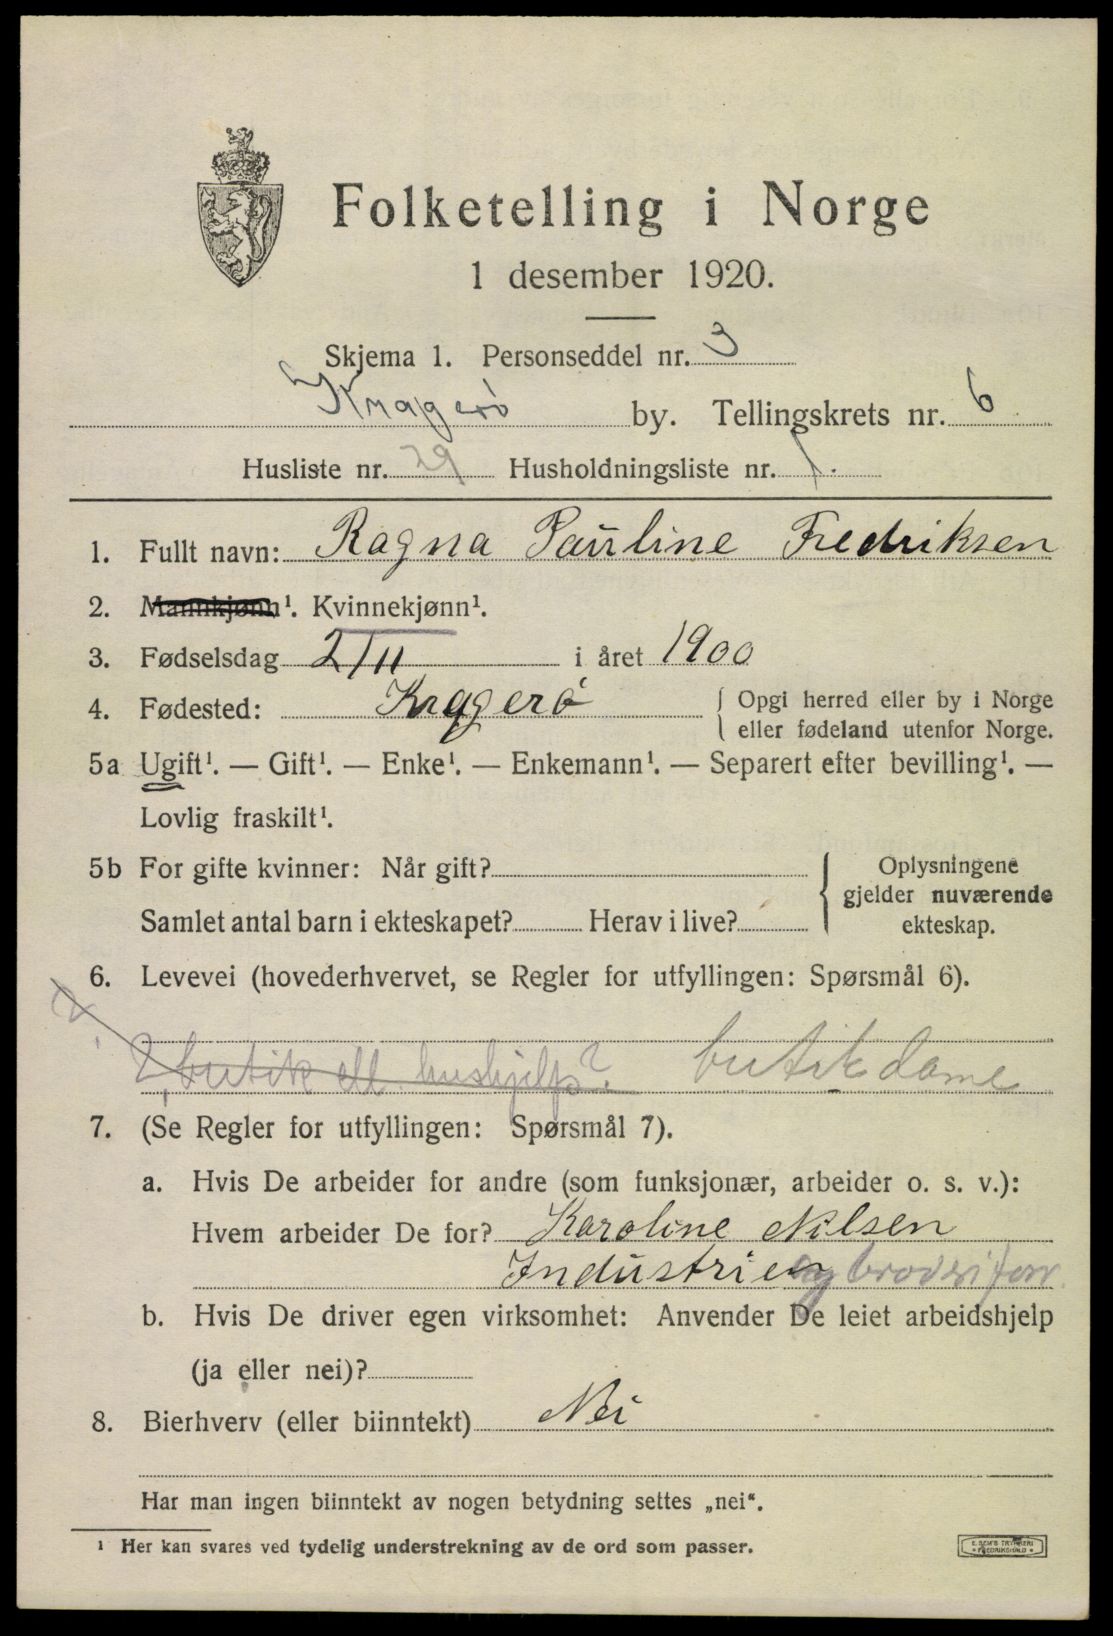 Folketelling i Norge
1 desember 1920.
Skjema 1. Personseddel nr. 3
Kragerö by. Tellingskrets nr. 6
Husliste nr. 29 Husholdningsliste nr. 1.
1. Fullt navn: Ragna Pauline Fredriksen
2. Mannkjønn¹. Kvinnekjønn¹.
3. Fødselsdag 2/11 i året 1900
4. Fødested: Kragerö { Opgi herred eller by i Norge
eller fødeland utenfor Norge.
5a Ugift¹. — Gift¹. — Enke¹. — Enkemann¹. — Separert efter bevilling¹. —
Lovlig fraskilt¹.
5b For gifte kvinner: Når gift? Oplysningene
gjelder nuværende
Samlet antal barn i ekteskapet? Herav i live? ekteskap.
6. Levevei (hovederhvervet, se Regler for utfyllingen: Spørsmål 6).
butik ell. hushjelp? butikdame
7. (Se Regler for utfyllingen: Spørsmål 7).
a. Hvis De arbeider for andre (som funksjonær, arbeider o. s. v.):
Hvem arbeider De for? Karoline Nilsen
Industrien og broderiforr.
b. Hvis De driver egen virksomhet: Anvender De leiet arbeidshjelp
(ja eller nei)?
8. Bierhverv (eller biinntekt) Nei
Har man ingen biinntekt av nogen betydning settes „nei“.
¹ Her kan svares ved tydelig understrekning av de ord som passer.